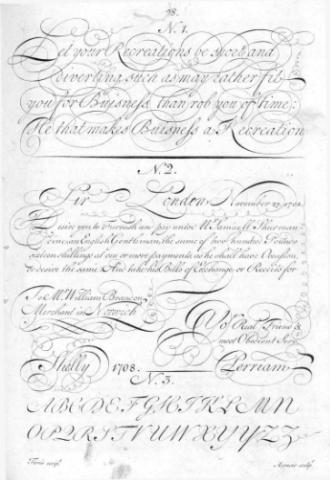 28.
N. 1.
Let your Recreations be short and
diverting, such as may rather fit
you for Buisness than rob you of time;
He that makes Buisness a Recreation
N. 2.
Sir London November
you to furnish and pay unto Mr. Samuel
an English Gentleman, the sume of two hundred Pounds
sixteen shillings at one or more payments, as he shall have Occasion,
the same And take his Bills of Exchange or Receits for
To Mr. William
Merchant in Norwich
Yor. Real Friend &
most Obedient Servt.
Shelly 1708. Perriam
N. 3.
ABCDEFGHIJKLMN
OPQRSTVUWXYZZ
sculp.